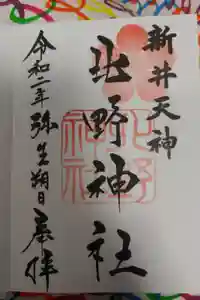 新井天神
北野神社
令和二年弥生朔日奉拝
北野
神社